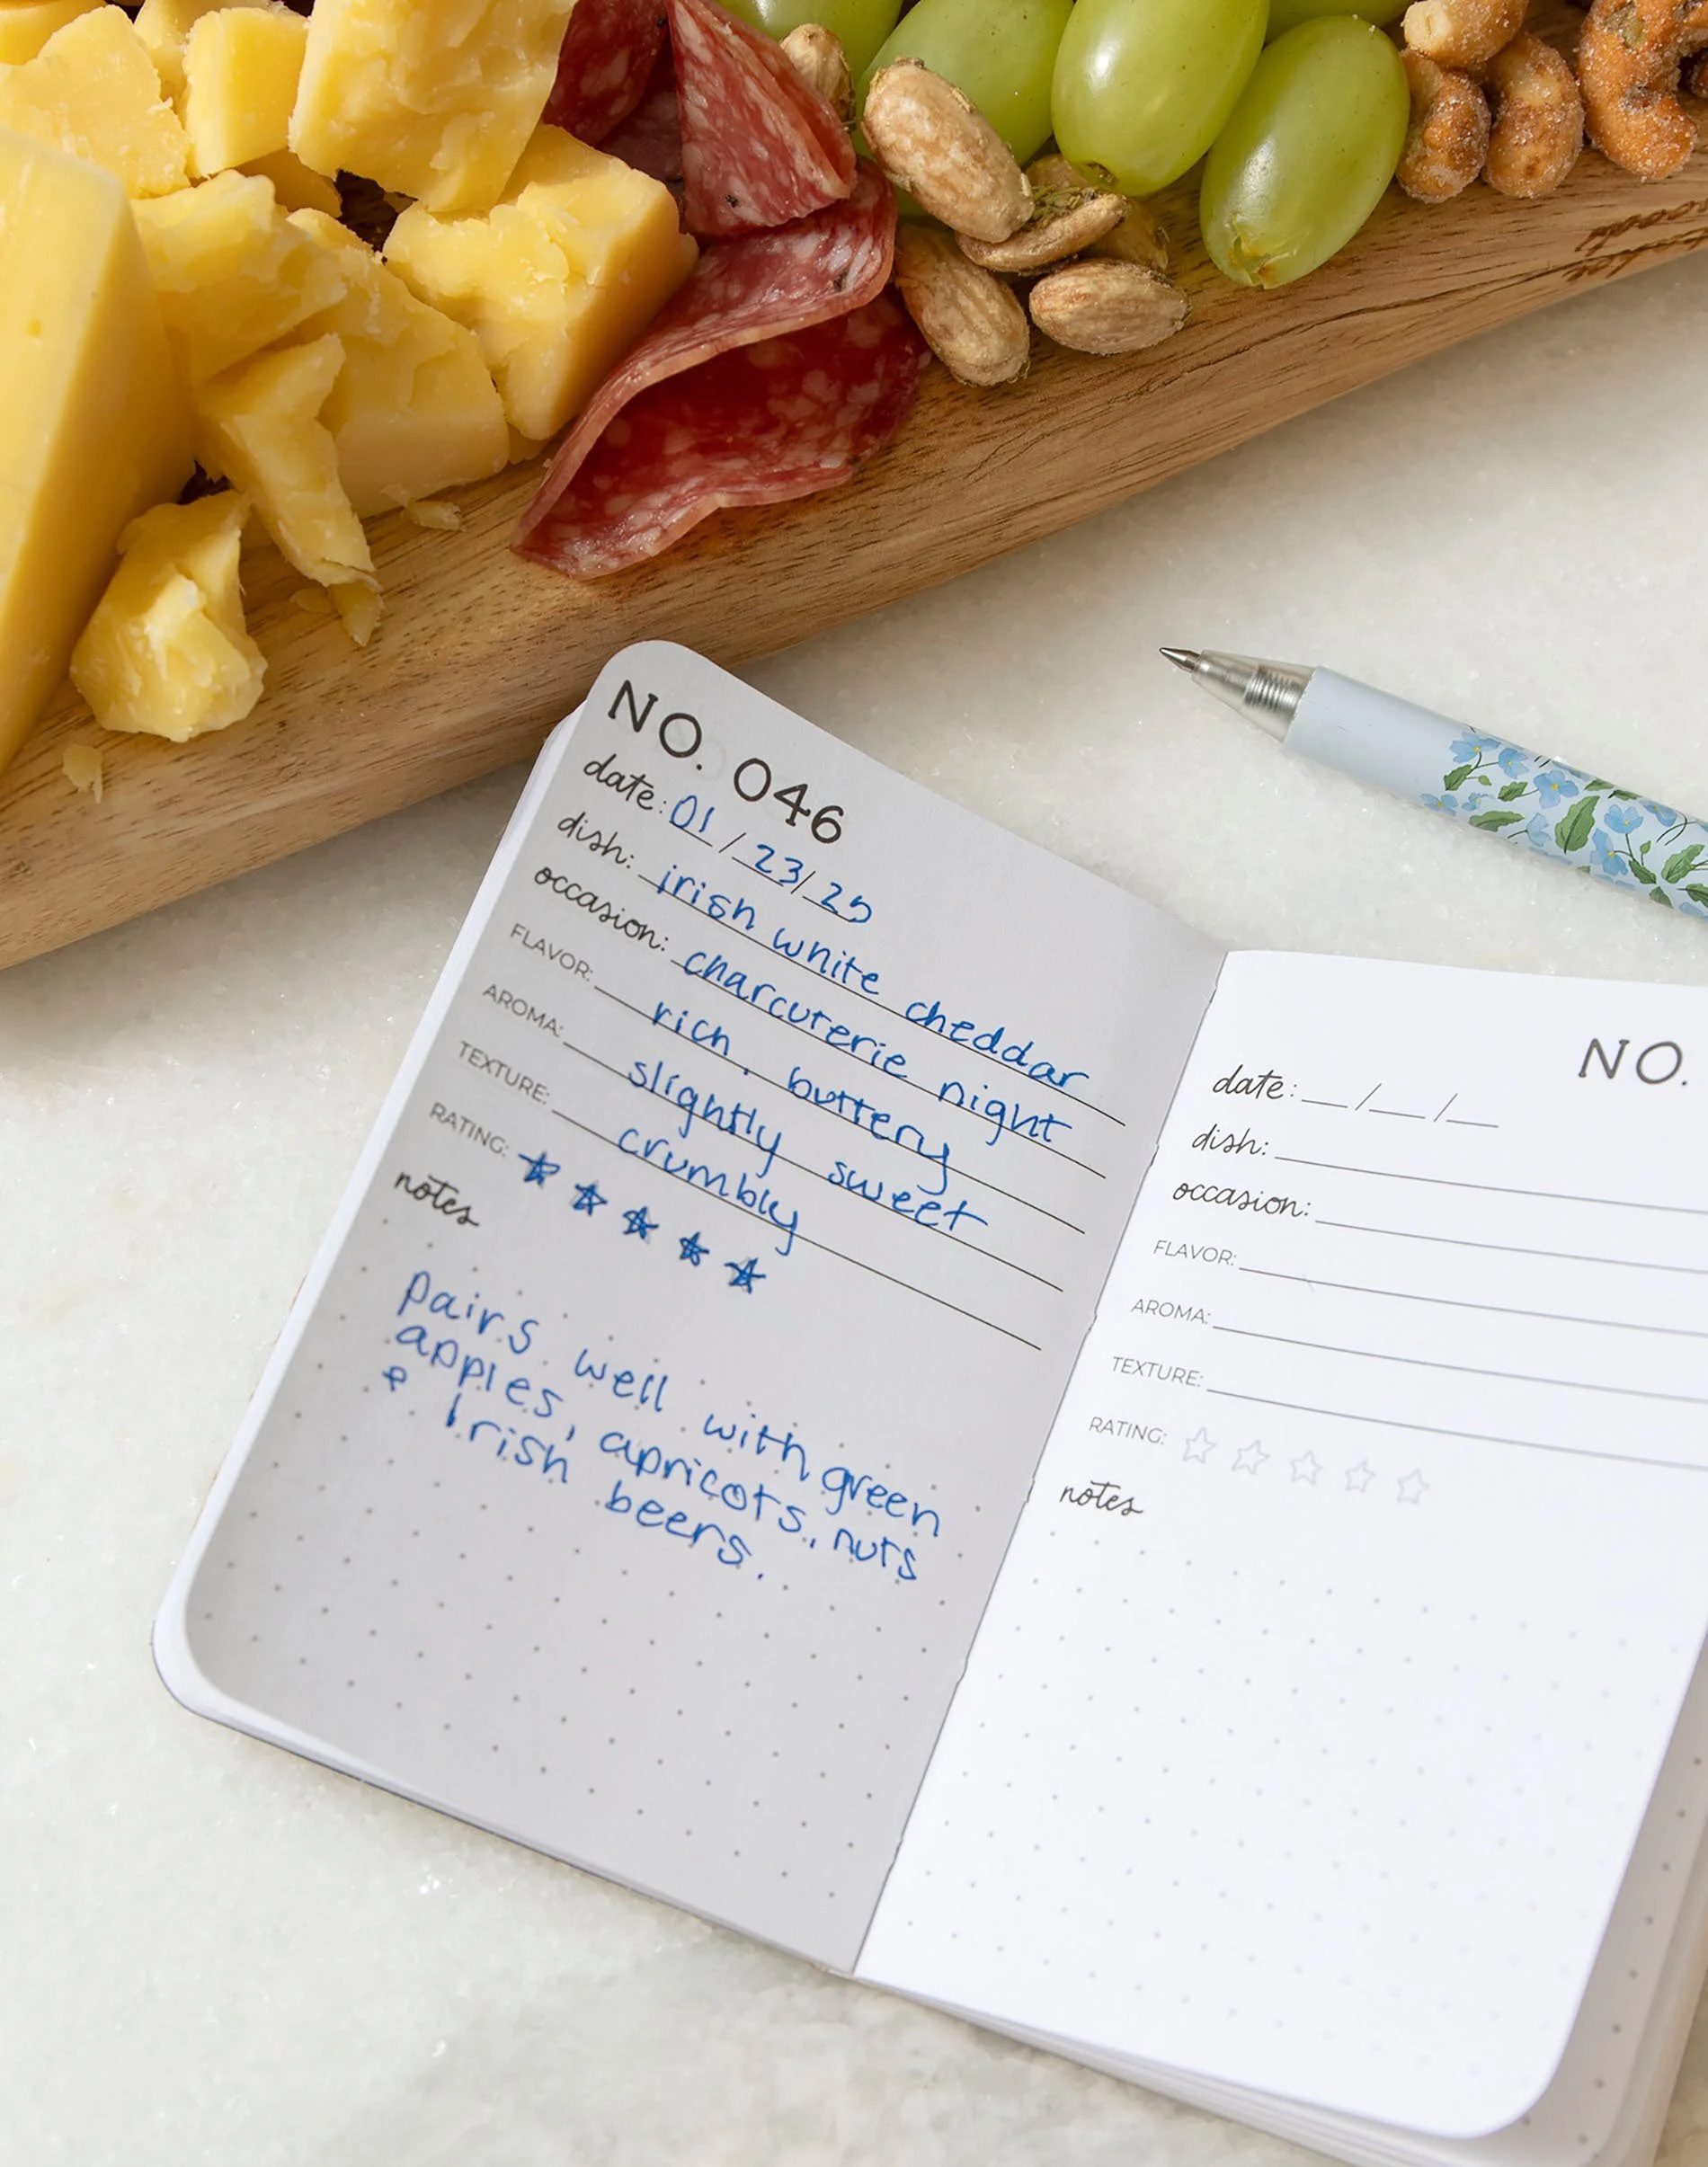 NO. 046
date: 01/23/25
dish: irish white cheddar
occasion: charcuterie night
FLAVOR: rich, buttery
AROMA: slightly sweet
TEXTURE: crumbly
RATING: ★ ★ ★ ★ ★
notes
pairs well with green
apples, apricots, nuts
& Irish beers.
NO.
date: __/__/__
dish:
occasion:
FLAVOR:
AROMA:
TEXTURE:
RATING: ☆ ☆ ☆ ☆ ☆
notes